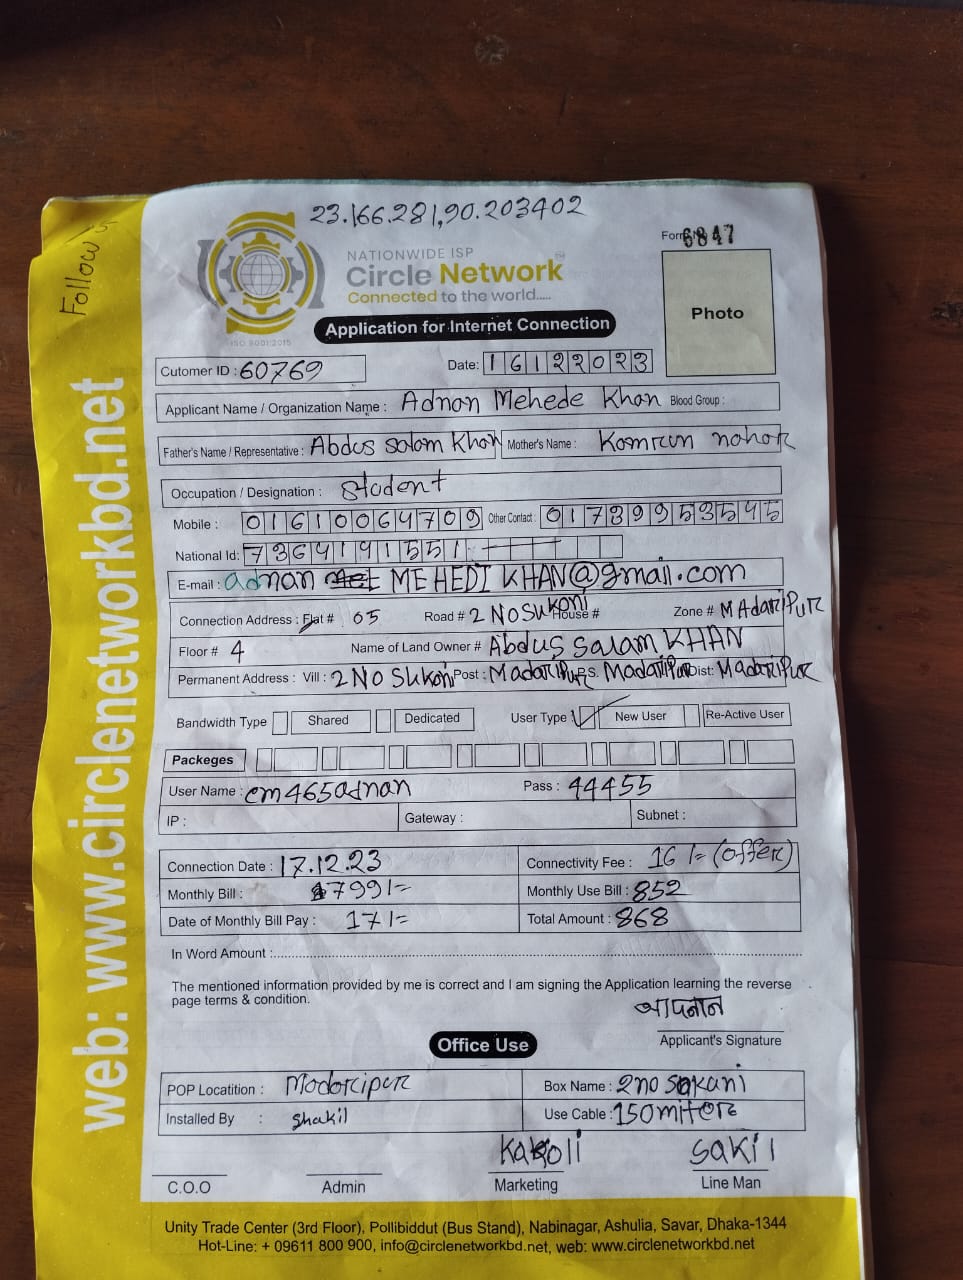 23.166.281,90.203402
Follow
Form 6847
NATIONWIDE ISP
Circle Network
Connected to the world.....
ISO 9001:2015
Application for Internet Connection
Photo
Cutomer ID : 60769 Date: 16122023
Applicant Name / Organization Name : Adnan Mehede Khan Blood Group :
Father's Name / Representative : Abdus Salam Khan Mother's Name : Kamrun nahar
Occupation / Designation : Student
Mobile : 01610064709 Other Contact : 01789953545
National Id: 7364191551
E-mail : adnan MEHEDI KHAN@gmail.com
Connection Address : Flat # 05 Road # 2 NO SuKoni House # Zone # MAdariPUR
Floor # 4 Name of Land Owner # Abdus Salam KHAN
Permanent Address : Vill : 2 NO SuKoni Post : MadariPur P.S. MadariPur Dist: MadariPUR
Bandwidth Type Shared Dedicated User Type New User Re-Active User
Packeges
User Name : cm465adnan Pass : 44455
IP : Gateway : Subnet :
Connection Date : 17.12.23 Connectivity Fee : 16/= (offer)
Monthly Bill : 799/= Monthly Use Bill : 852
Date of Monthly Bill Pay : 17/= Total Amount : 868
In Word Amount :
The mentioned information provided by me is correct and I am signing the Application learning the reverse
page terms & condition.
আদনান
Applicant's Signature
Office Use
POP Locatition : Modoripur Box Name : 2no Sokani
Installed By : Shakil Use Cable : 150mitore
Kakoli SAKil
C.O.O Admin Marketing Line Man
Unity Trade Center (3rd Floor), Pollibiddut (Bus Stand), Nabinagar, Ashulia, Savar, Dhaka-1344
Hot-Line: + 09611 800 900, info@circlenetworkbd.net, web: www.circlenetworkbd.net
web: www.circlenetworkbd.net